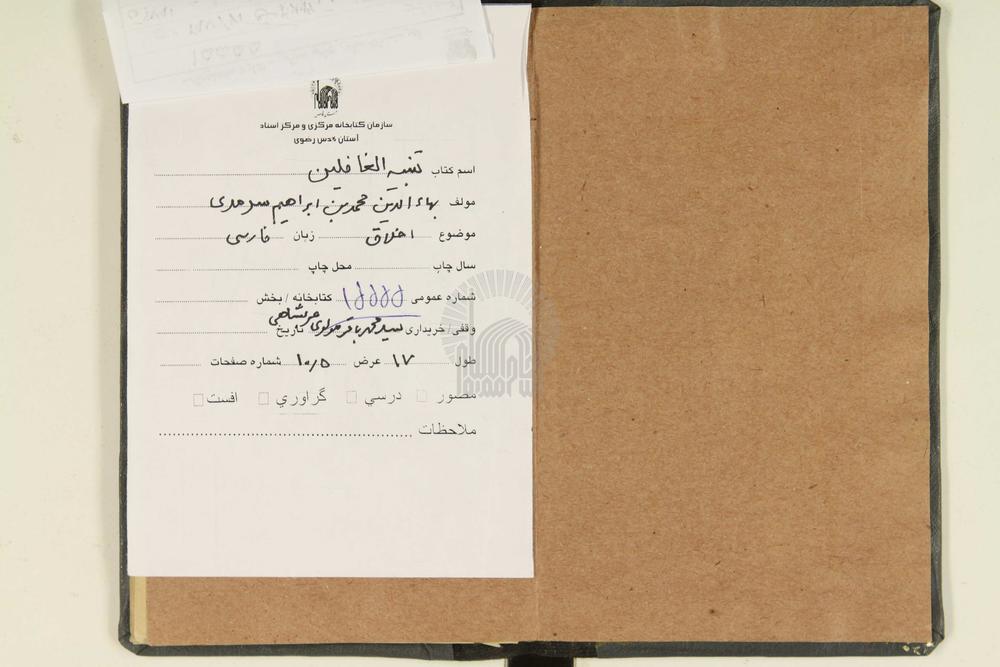 سازمان کتابخانه مرکزی و مرکز اسناد
آستان قدس رضوی
اسم کتاب تنبیه الغافلین
مولف بهاء الدین محمد بن ابراهیم
موضوع اخلاق زبان فارسی
سال چاپ محل چاپ
شماره عمومی کتابخانه / بخش
وقفی / خریداری سید محمد باقر تاریخ
طول ۱۷ عرض ۱۰٫۵ شماره صفحات
مصور درسي گراوري افست
ملاحظات